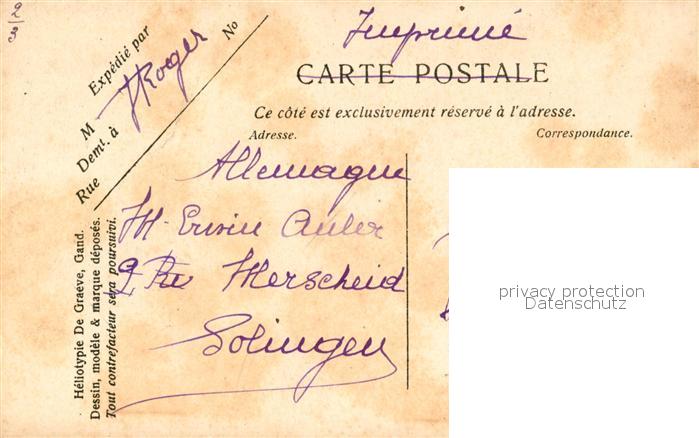 2/3
Imprimé
CARTE POSTALE
Ce côté est exclusivement réservé à l'adresse.
Adresse.
Correspondance.
Expédié par
M
Demt. à
Rue
No
Allemagne
M. Erwin Auler
Merscheid
Solingen
Héliotypie De Graeve, Gand.
Dessin, modèle & marque déposés.
Tout contrefacteur sera poursuivi.
privacy protection
Datenschutz